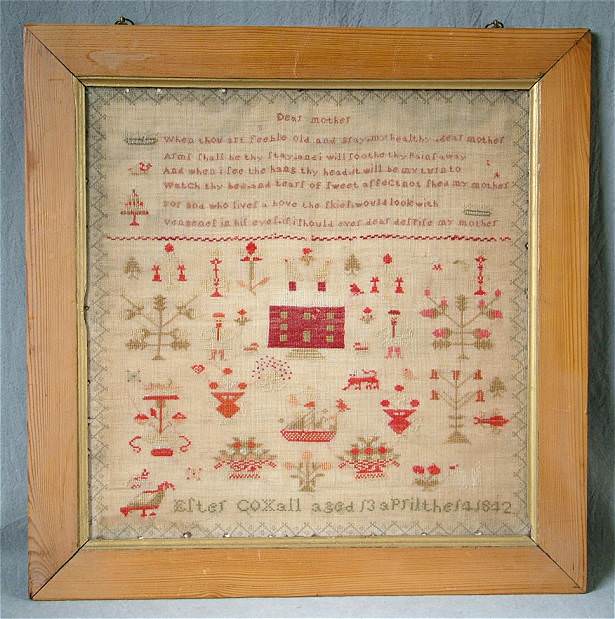 Dear mother
When thou art feeble old and gray my healthy dear mother
Arms shall be thy stay and i will soothe thy away
And when i see the hang thy head it will be my turn to
Watch thy bed and tears of sweet affect not shed my mother
For god who lives a bove the skies would look with
vengence in his eyes if i should ever dear despise my mother
Ester COXall aged 13 aPril the 14 1842